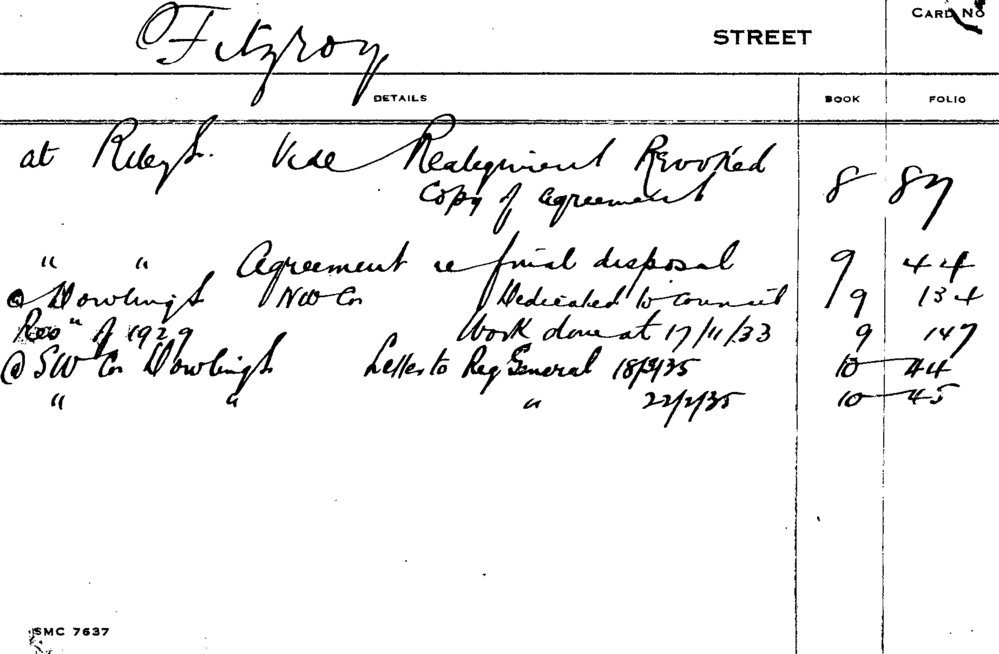 Fitzroy STREET CARD No
DETAILS BOOK FOLIO
at Riley St. Vide Realignment Revoked
Copy of agreement 8 87
" " Agreement re final disposal 9 44
@ Dowling St NW Cor Dedicated to Council 9 134
Res" of 1929 Work done at 17/11/33 9 147
@ SW Cor Dowling St Letter to Reg General 35 10 44
" " " 22/2/35 10 45
SMC 7637